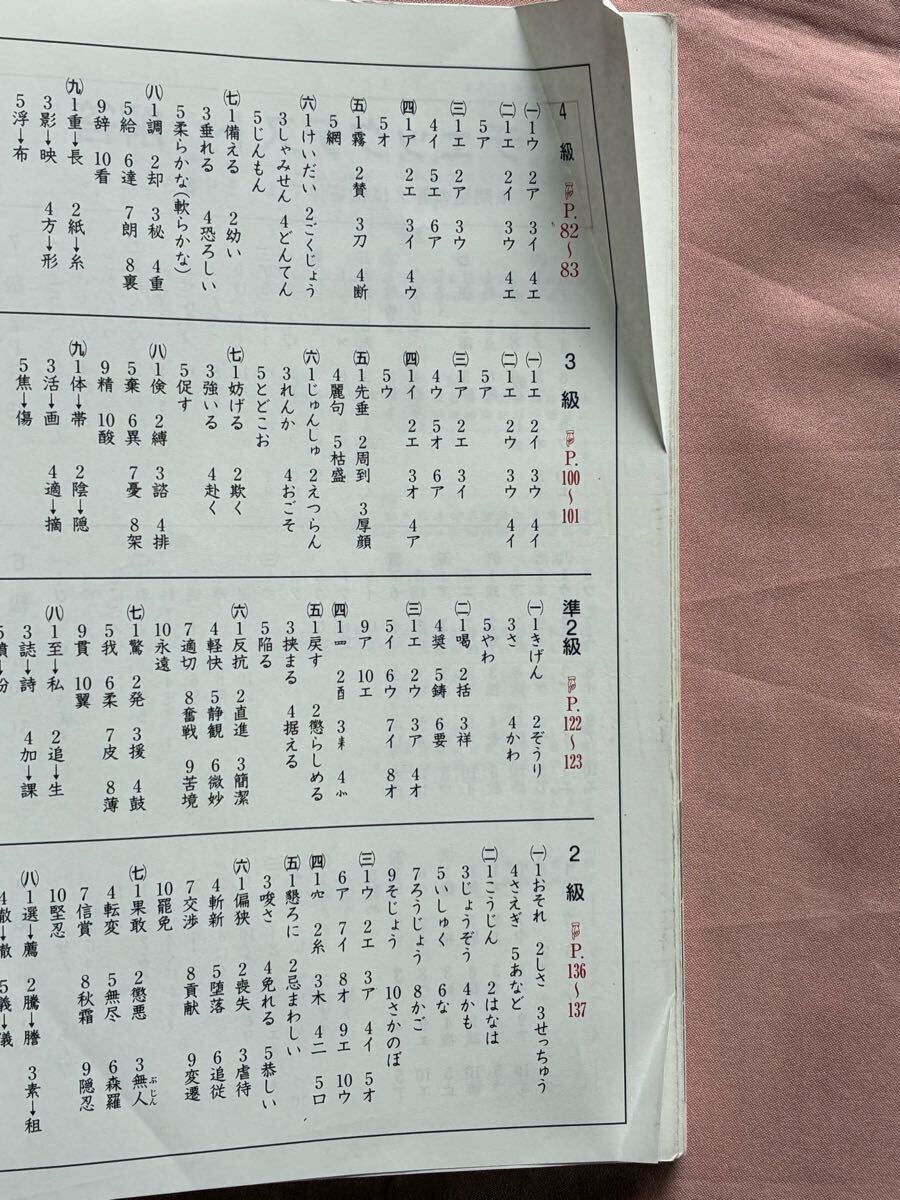 4級 P.82〜83
㈠1ウ 2ア 3イ 4エ
㈡1エ 2イ 3ウ 4エ
5ア
㈢1エ 2ア 3ウ
4イ 5エ 6ア
㈣1ア 2エ 3イ 4ウ
5オ
㈤1霧 2賛 3刀 4断
5網
㈥1けいだい 2ごくじょう
3しゃみせん 4どんてん
5じんもん
㈦1備える 2幼い
3垂れる 4恐ろしい
5柔らかな(軟らかな)
㈧1調 2却 3秘 4重
5給 6達 7朗 8裏
9辞 10看
㈨1重→長 2紙→糸
3影→映 4方→形
5浮→布
3級 P.100〜101
㈠1エ 2イ 3ウ 4イ
㈡1エ 2ウ 3ウ 4イ
5ア
㈢1ア 2エ 3イ
4ウ 5オ 6ア
㈣1イ 2エ 3オ 4ア
5ウ
㈤1先垂 2周到 3厚顔
4麗句 5枯盛
㈥1じゅんしゅ 2えつらん
3れんか 4おごそ
5とどこお
㈦1妨げる 2欺く
3強いる 4赴く
5促す
㈧1倹 2縛 3諮 4排
5棄 6異 7憂 8架
9精 10酸
㈨1体→帯 2陰→隠
3活→画 4適→摘
5焦→傷
準2級 P.122〜123
㈠1きげん 2ぞうり
3さ 4かわ
5やわ
㈡1喝 2括 3祥
4奨 5鋳 6要
㈢1エ 2ウ 3ア 4オ
5イ 6ウ 7イ 8オ
9ア 10エ
㈣1罒 2酉 3耒 4⺗
㈤1戻す 2懲らしめる
3挟まる 4据える
5陥る
㈥1反抗 2直進 3簡潔
4軽快 5静観 6微妙
7適切 8奮戦 9苦境
10永遠
㈦1驚 2発 3援 4鼓
5我 6柔 7皮 8薄
9貫 10翼
㈧1至→私 2追→生
3誌→詩 4加→課
2級 P.136〜137
㈠1おそれ 2しさ 3せっちゅう
4さえぎ 5あなど
㈡1こうじん 2はなは
3じょうぞう 4かも
5いしゅく 6な
7ろうじょう 8かご
9そじょう 10さかのぼ
㈢1ウ 2エ 3ア 4イ 5オ
6ア 7イ 8オ 9エ 10ウ
㈣1穴 2糸 3木 4二 5口
㈤1懇ろに 2忌まわしい
3唆さ 4免れる 5恭しい
㈥1偏狭 2喪失 3虐待
4斬新 5堕落 6追従
7交渉 8貢献 9変遷
10罷免
㈦1果敢 2懲悪 3無人ぶじん
4転変 5無尽 6森羅
7信賞 8秋霜 9隠忍
10堅忍
㈧1選→薦 2騰→謄 3素→租